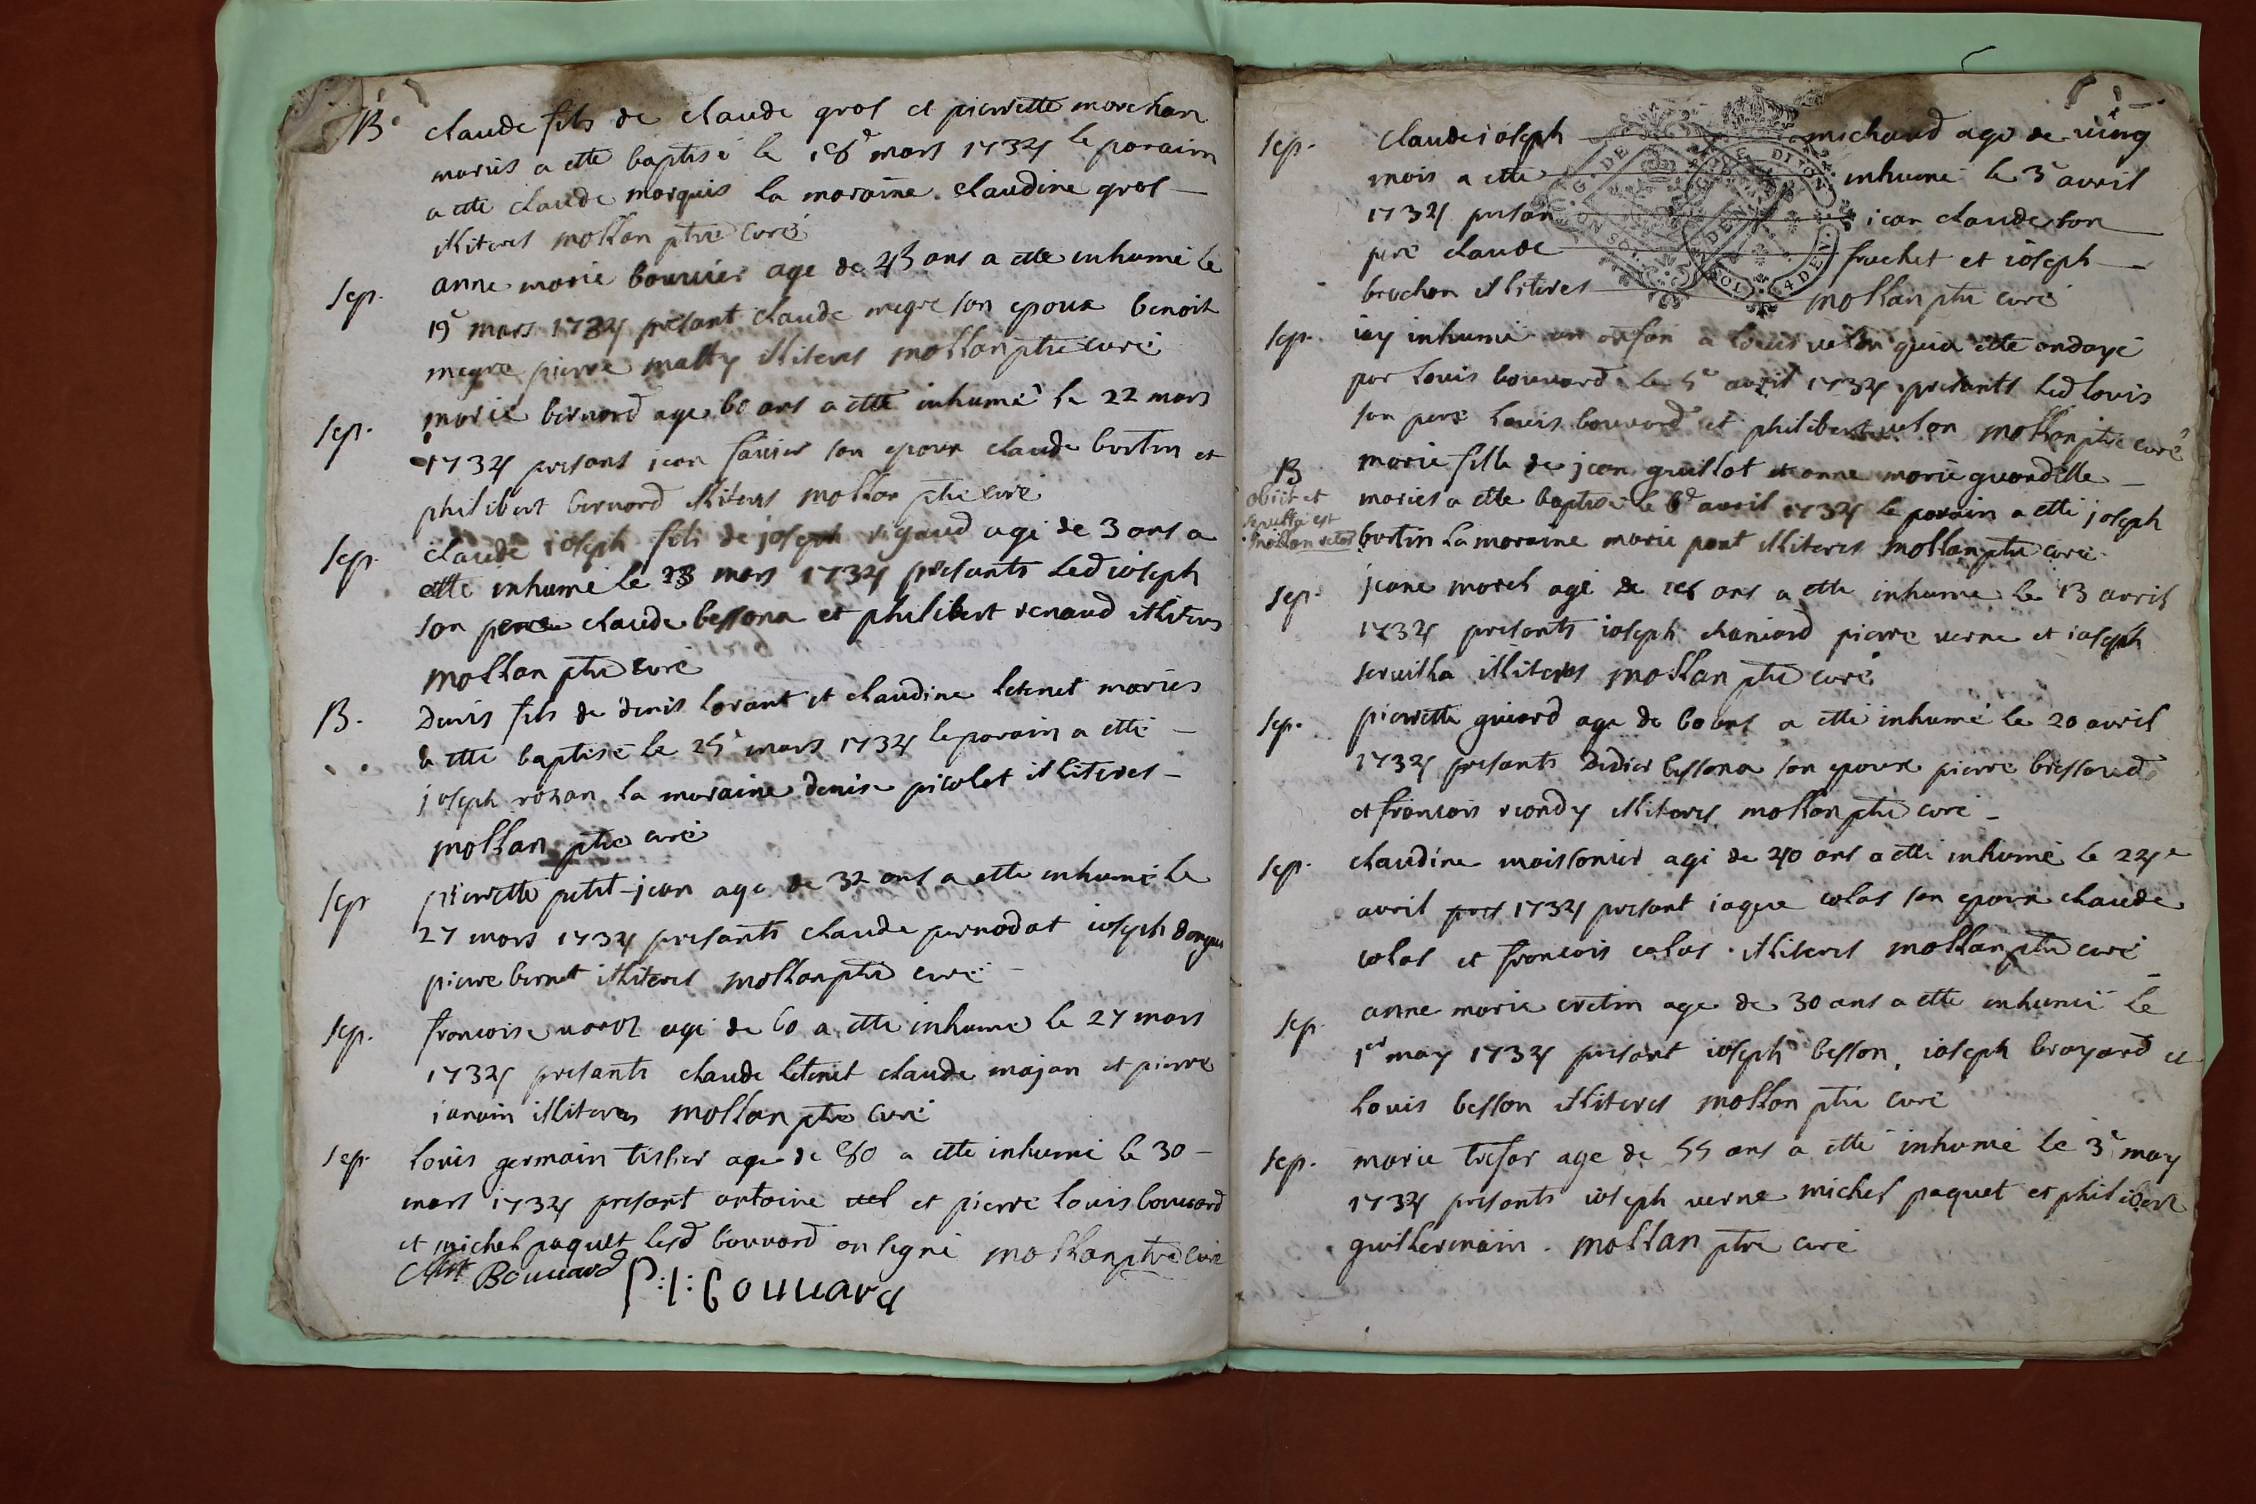 B. claude fils de claude grol et pierrette morchan
mariés a etté baptisé le 18e mars 1734 le parain
a etté claude marquis la moraine claudine grol
illiteres mollan ptre curé
sep. anne marie bouvier age de 43 ans a etté inhumé le
19e mars 1734 présant claude megre son epoux benoit
megre pierre matty illiteres mollan ptre curé
sep. marie bernord age 60 ans a etté inhumé le 22 mars
1734 presans jean favier son epoux claude burtin et
philibert bernord illiteres mollan ptre curé
sep. claude ioseph fils de joseph rigaud agé de 3 ans a
etté inhumé le 23 mars 1734 présants led ioseph
son pere claude bessona et philibert renaud illiteres
mollan ptre curé
B. Denis fils de denis lorant et claudine letenet mariés
a etté baptisé le 25e mars 1734 le parain a etté
joseph rozan la maraine denise picolet illiteres
mollan ptre curé
sep pierrette petit-jean age de 32 ans a etté inhumé le
27 mars 1734 présants claude pernodat ioseph donguy
pierre bernet illiteres mollan ptre curé
sep. francoise agé de 60 a etté inhume le 27 mars
1734 presants claude letenet claude majan et pierre
janain illiteres mollan ptre curé
sep. louis germain tissier age de 80 a etté inhumé le 30
mars 1734 presant antoine et pierre louis bouvard
et michel paquet lesd bouvard on signé mollan ptre curé
Ant Bouuard P:l: Bouuard
sep. claude ioseph michaud age de
mois a etté inhumé le 3e avril
1734 presan jean claude son
pere claude fruchet et ioseph
brochon illiteres mollan ptre curé
G. DE DIION
SOL. 4 DEN.
sep. iay inhumé un enfan a louis velon qui a etté ondoyé
par louis bouvard le 5e avril 1734 présants led louis
son pere louis bouvard et philibert velon mollan ptre curé
B marie fille de jean guillot et anne marie guerdelle
obiit et
sepulta est
mollan
mariés a etté baptisé le 6e avril 1734 le parain a etté joseph
burtin la moraine marie pont illiteres mollan ptre curé
sep. jeane morel agé de 18 ans a etté inhume le 13 avril
1734 presants ioseph chaniard pierre verne et ioseph
servilha illiteres mollan ptre curé
sep. pierrette guiard age de 60 ans a etté inhumé le 20 avril
1734 presants Didier bessona son epoux pierre bressoud
et francois riondy illiteres mollan ptre curé
sep. claudine moissonier agé de 40 ans a etté inhumé le 24e
avril 1734 presant iaque colas son epoux claude
colas et francois colas illiteres mollan ptre curé
sep. anne marie cretin age de 30 ans a etté inhumé le
1er may 1734 présant ioseph besson, ioseph broyard et
louis besson illiteres mollan ptre curé
sep. marie tresor age de 55 ans a etté inhumé le 3e may
1734 présants ioseph verne michel paquet et philibert
guillermain. mollan ptre curé